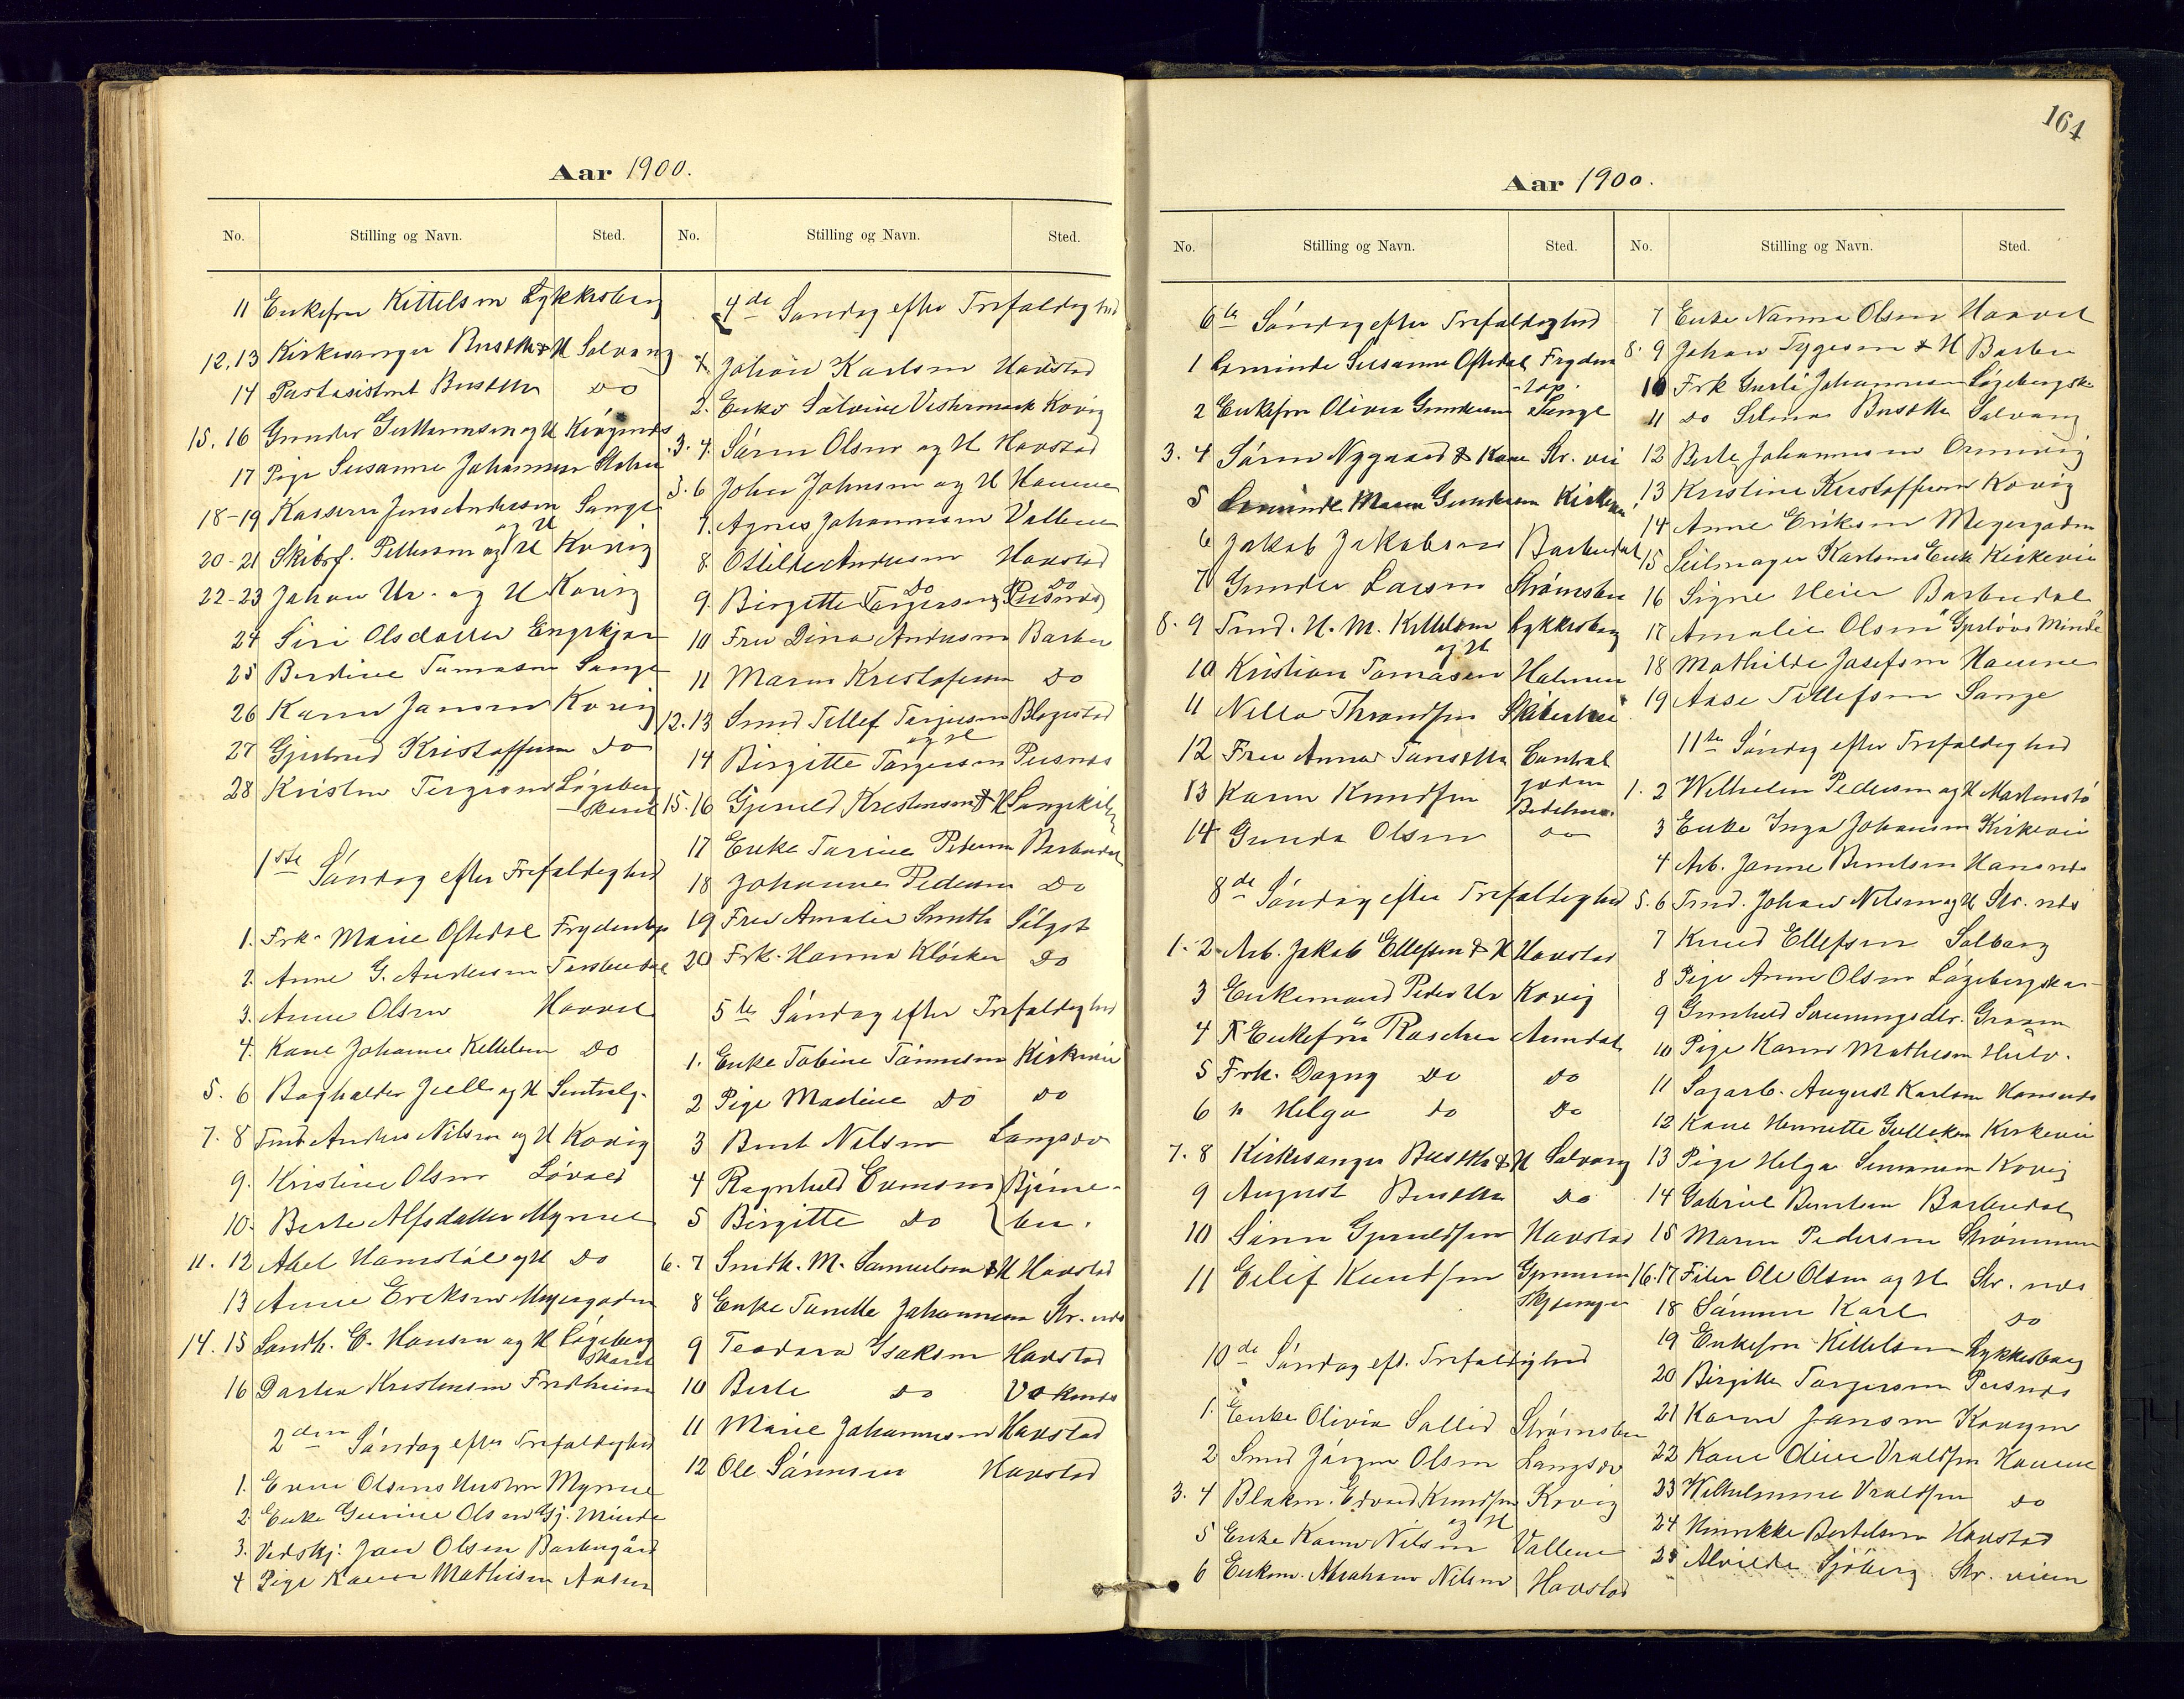 164
Aar 1900.
No. Stilling og Navn. Sted. No. Stilling og Navn. Sted.
11 Enkefru Kittelsen Lykkesberg
12,13 Kirkesanger Busetter & H Solvang
14 Postasistent Busetter do
15. 16 Gunder og H
17 Pige Susanne Johannesen
18-19 Jens Andersen og H Songe
20-21 Skibsf. Pettersen og H Kovig
22-23 Johan Ur. og H Kovig
24 Siri Olsdatter Engekjær
25 Berdine Tomasen Songe
26 Karen Jansen Kovig
27 Gjertrud Kristoffersen do
28 Kristen Terjesens Løgeberg
skard
1ste Søndag efter Trefoldighed
1. Frk. Marie Oftedal
2. Anne G. Andersen
3. Anne Olsen Hovet
4. Kone Johanne Kittelsen do
5. 6 Bogholder Juell og H Sentralg.
7. 8 Tmd Anders Nilsen og H Kovig
9. Kristine Olsen Løvold
10. Berte Alfsdatter Myrene
11. 12 Abel og H do
13 Anne Eriksen Meyergaden
14. 15 Landh. E. Hansen og H Løgeberg
skard
16 Kristensen Fredheim
2den Søndag efter Trefoldighed
1. Even Olsens Hustru Myrene
2. Enke Gurine Olsen Gj. Minde
3. Vedskj. Jan Olsen Barbugård
4 Pige Karen Mathisen
4de Søndag efter Trefoldighed
1. Johan Karlsen Havstad
2. Enke Salvine Vestermark Kovig
3. 4. Søren Olsen og H Havstad
5. 6 John Johnsen og H
7. Agnes Johannesen Vallene
8. Otilde Andersen Havstad
9. Birgitte Torgersen Pusnes
do do
10 Fru Dina Andersen Barbu
11 Maren Kristofersen do
12. 13 Smed Tellef Terjesen Blogestad
og H
14 Birgitte Torgersen Pusnes
15. 16 Gjeruld Kristensen & H Songekil
17 Enke Tarine Pedersen Barbudal
18 Johanne Pedersen do
19 Fru Amalie Smith
20 Frk. Hanna Kløcker do
5te Søndag efter Trefoldighed
1. Enke Tobine Tønnesen Kirkevei
2 Pige Madine do do
3 Bent Nilsen Langsæ
4 Ragnhild Evensen Bjønne-
5 Birgitte do bu.
6. 7 Smdh. M. Samuelsen & H Havstad
8 Enke Tomette Johannesen Str. nds
9 Teodora Isaksen Havstad
10 Berte do
11 Marie Johannesen Havstad
12 Ole Sørensen Havstad
Aar 1900.
No. Stilling og Navn. Sted. No. Stilling og Navn. Sted.
6te Søndag efter Trefoldighed
1 Susanne Oftedal Fryden
-top.
2 Enkefru Olivia Gundersen Songe
3. 4 Søren Nygaard & Kone Str. vei
5 Maren Gundersen Kirkevei
6 Jakob Jakobsen Barbudal
7 Gunder Larsen Strømsbu
8. 9 Tmd. H. M. Kittelsen Lykkesberg
og H
10 Kristian Tomasen Holmen
11 Nilla Throndsen
12 Fru Anna Central
gaden
13 Karen Knudsen
14 Gunda Olsen do
8de Søndag efter Trefoldighed
1. 2 Arb. Jakob Ellefsen & H Havstad
3 Enkemand Peder Ur Kovig
4 Enkefru Roscher Arendal
5 Frk. Dagny do do
6 " Helga do do
7. 8 Kirkesanger Busetter & H Solvang
9 August Busetter do
10 Gjeruldsen Havstad
11 Eilif Knudsen
10de Søndag eft. Trefoldighed
1. Enke Olivia Strømsbu
2 Smed Jørgen Olsen Langsæ
3. 4 Edvard Knudsen Kovig
og H
5 Enke Karen Nilsen Vallene
6 Enkem. Abraham Nilsen Havstad
7 Enke Nanna Olsen Hovet
8. 9 Johan Tygesen & H Barbu
10 Frk Gurli Johannesen Løgebergsk.
11 do Selma Busetter Solvang
12 Berte Johannesen
13 Kristine Kristoffersen Kovig
14 Anne Eriksen Meyergaden
15 Seilmager Karlsens Enke Kirkevei
16 Signe Heier Barbudal
17 Amalie Olsen "Gjerløvs Minde"
18 Mathilde Josefsen
19 Aase Tellefsen Songe
11te Søndag efter Trefoldighed
1. 2 Wilhelm Pedersen og H
3 Enke Inga Johansen Kirkevei
4 Arb. Janne Berntsen
5. 6 Tmd. Johan Nilsen og H Str. nds
7 Knud Ellefsen Solberg
8 Pige Anne Olsen Løgebergskar-
9 Gunhild
10 Pige Karen Mathisen
11 Sagarb. August Karlsen
12 Kone Henriette Kirkevei
13 Pige Helga Kovig
14 Gabriel Berntsen Barbudal
15 Maren Pedersen Strømmen
16.17 Filer Ole Olsen og H Str. nds
18 Karl do
19 Enkefru Kittelsen Lykkesberg
20 Birgitte Torgersen Pusnes
21 Karen Jansen Kovigen
22 Kone Oline Vraldsen
23 Wilhelmine Vraldsen do
24 Henrikke Bertelsen Havstad
25 Alvilde Sjöberg Str. veien